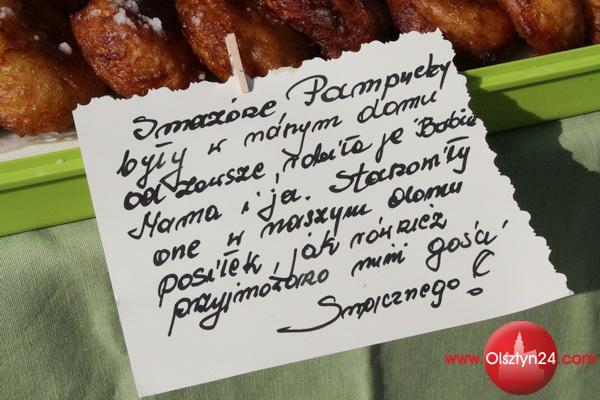 Smażone Pampuchy
były w naszym domu
od zawsze, robiła je Babcia
Mama i ja. Stanowiły
one w naszym domu
posiłek, jak również
przyjmowano nimi gości
Smacznego!
www.Olsztyn24.com